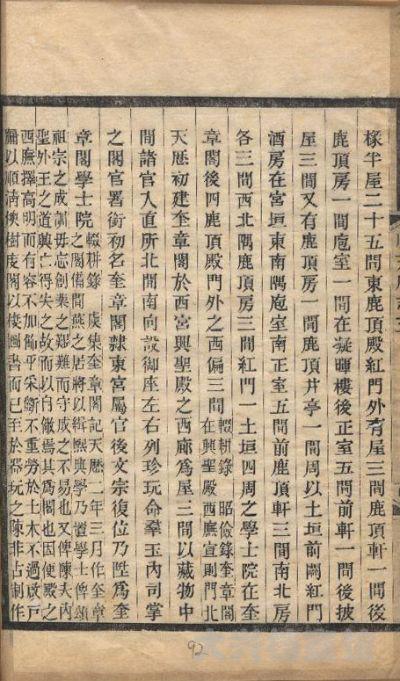 椽半屋二十五間東鹿頂殿紅門外有屋三間鹿頂軒一間後
鹿頂房一間庖室一間在凝暉樓後正室五間前軒一間後披
屋三間又有鹿頂房一間鹿頂井亭一間周以土垣前闢紅門
酒房在宮垣東南隅庖室南正室五間前鹿頂軒三間南北房
各三間西北隅鹿頂房三間紅門一土垣四周之學士院在奎
章閣後四鹿頂殿門外之西偏三間
輟耕錄 昭儉錄奎章閣
在興聖殿西廡宣則門北
天厯初建奎章閣於西宮興聖殿之西廊為屋三間以藏物中
間諸官入直所北間南向設御座左右列珍玩命羣玉內司掌
之閣官署銜初名奎章閣隸東宮屬官後文宗復位乃陞為奎
章閣學士院
輟耕錄 虞集奎章閣記天厯二年三月作奎章
之閣備間燕之居將以緝熙典學乃置學士俾頌
祖宗之成訓毋忘創業之艱難而守成之不易也又俾陳夫內
聖外王之道興亡得失之故而以自儆焉其為閣也因便殿之
西廡擇高明而有容不加飾乎采斲不重勞於土木不過啟戶
牖以順清燠樹庋閣以棲圖書而已至於器玩之陳非古制作
92